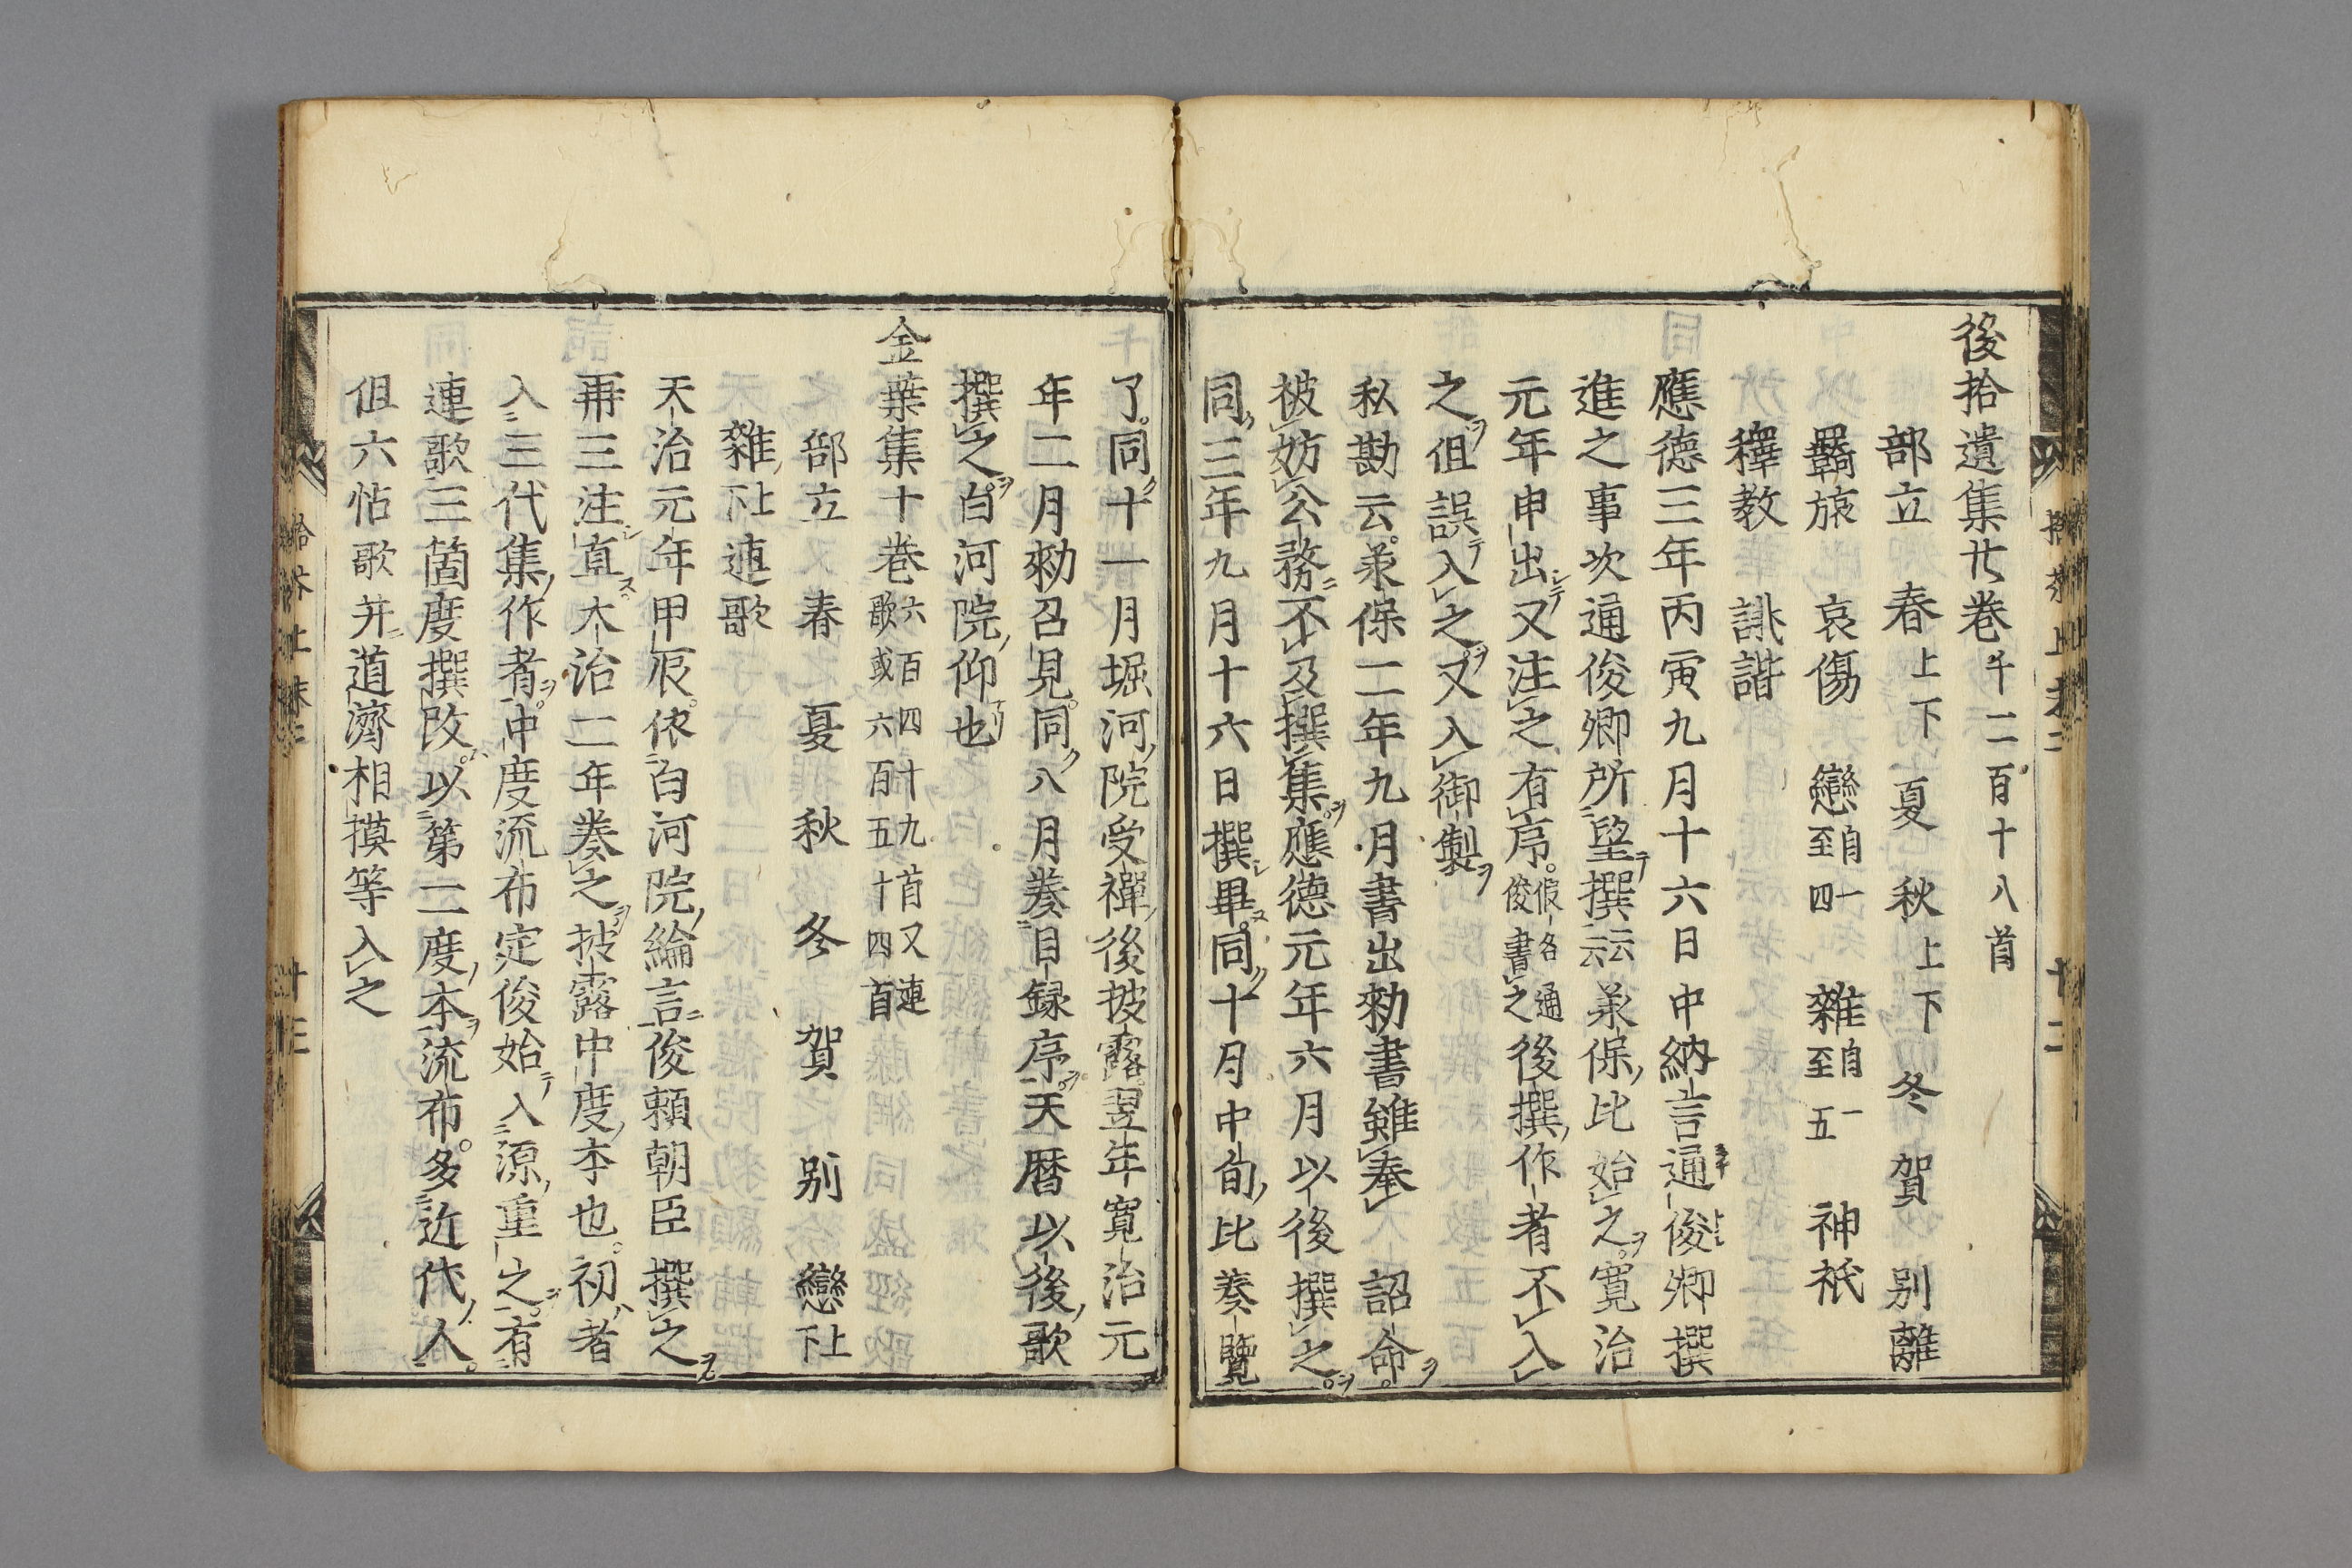 後拾遺集廿巻 千二百十八首
部立 春上下 夏 秋上下 冬 賀 別離
羇旅 哀傷 戀自一至四 雜自一至五 神祇
釋教 誹諧
應德三年丙寅九月十六日中納言通俊卿撰
進之事次通俊卿所望撰云云承保比始之寛治
元年申出又注之有序假名通俊書之後撰作者不入
之但誤入之又入御製
私勘云承保二年九月書出勅書雖奉 詔命
被妨公務不及撰集應德元年六月以後撰之
同三年九月十六日撰畢同十月中旬比奏覽
了同十一月堀河院受禪後披露翌年寛治元
年二月勅召見同八月奏目録序天暦以後歌
撰之白河院仰也
金葉集十巻六百四十九首又連歌或六百五十四首
部立 春 夏 秋 冬 賀 別 戀上下
雜上下 連歌
天治元年甲辰依白河院綸言俊頼朝臣撰之
再三注直大治二年奏之披露中度本也初者
入三代集作者中度流布定俊始入源重之有
連歌三箇度撰改以第二度本流布多近代人
但六帖歌并道濟相摸等入之